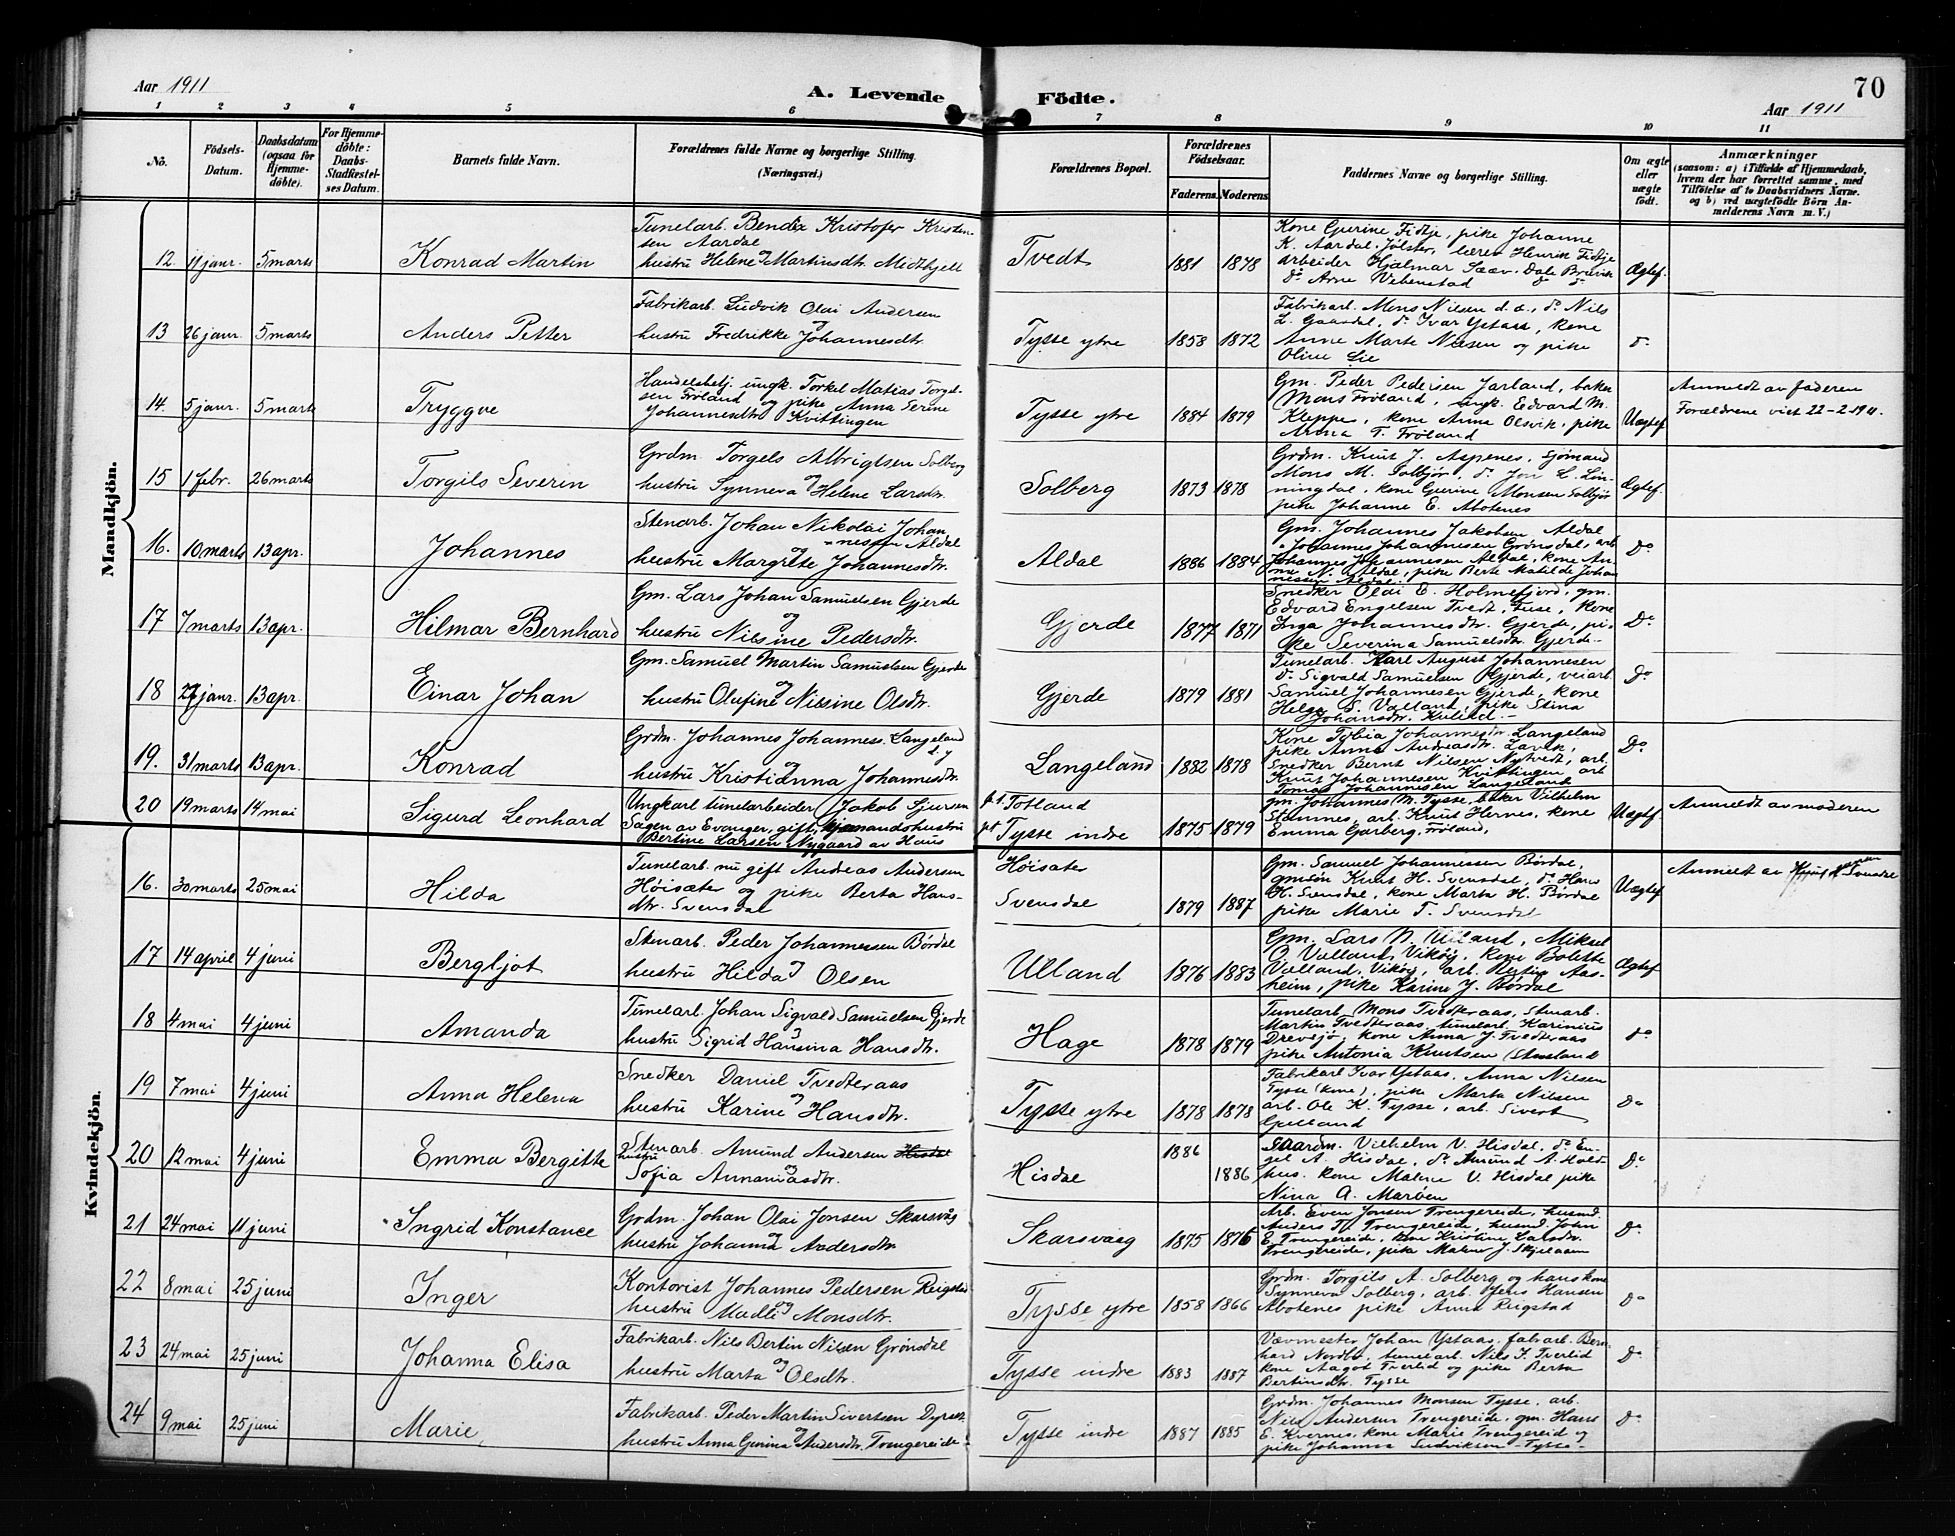 Aar 1911
A. Levende
Födte.
70
Aar 1911
1 2 3 4 5 6 7 8 9 10 11
No.
Födsels-
Datum.
Daabsdatum
(ogsaa for
Hjemme-
döbte).
For Hjemme-
döbte:
Daabs-
Stadfæstel-
ses Datum.
Barnets fulde Navn.
Forældrenes fulde Navne og borgerlige Stilling.
(Næringsvei.)
Forældrenes Bopæl.
Forældrenes
Födselsaar.
Faderens. Moderens.
Faddernes Navne og borgerlige Stilling.
Om ægte
eller
uægte
födt.
Anmærkninger
(saasom: a) i Tilfælde af Hjemmedaab,
hvem der har forrettet samme, med
Tilföielse af to Daabsvidners Navne.
og b) ved uægtefödte Börn An-
melderens Navn m. V.)
Mandkjön.
12. 11 janr. 5 marts
Konrad Martin
Tunelarb. Bendix Kristofer Kristen-
sen Aardal
og
hustru Helene Martinsdtr. Midtkjell
Tvedt
1881 1878
Kone Gjerine Fidtje, pike Johanne
K. Aardal, Jølster, lærer Henrik Fidtje
arbeider Hjalmar Saav. Dale Bruvik
do Arne Vebenstad do do
Ægtef.
13 26 janr. 5 marts
Anders Petter
Fabrikarb. Ludvik Olai Andersen
og
hustru Fredrikke Johannesdtr.
Tysse ytre
1858 1872
Fabrikarb. Mons Nilsen d.æ., do Nils
L. Gaasdal, do Ivar Ystaas, kone
Anne Marte Nilsen og pike
Oline Lie
do
14. 5 janr. 5 marts
Tryggve
Handelsbetj. ungk. Torkel Matias Torgel-
sen Frøland og pike Anna Serine
Johannesdtr Kvittingen
Tysse ytre
1884 1879
Gm. Peder Pedersen Jarland, baker
Mons Frøland, ungk. Edvard M.
Kleppe, kone Anna Olsvik, pike
Anna T. Frøland
Uægtef.
Anmeldt av faderen
Forældrene viet 22-2-1911.
15 1 febr. 26 marts
Torgils Severin
Grdm. Torgels Albrigtsen Solberg
og
hustru Synneva Helene Larsdtr.
Solberg
1873 1878
Grdm. Knut J. Aspenes, sjømand
Mons M. Solbjør, do Jon L. Løn-
ningdal, kone Gjerine Monsen Solbjør
pike Johanne E. Abotenes
Ægtef.
16. 10 marts 13 apr.
Johannes
Stenarb. Johan Nikolai Johan-
nessen Aldal
og
hustru Margrete Johannesdtr.
Aldal
1886 1884
Gm. Johannes Jakobsen Aldal
Johannes Johannesen Grønsdal, arb.
Johannes Johannesen Aldal, kone An-
na N. Aldal, pike Berte Matilde Johan
nessen Aldal.
Do
17 7 marts 13 apr.
Hilmar Bernhard
Gm. Lars Johan Samuelsen Gjerde
og
hustru Nilsine Pedersdtr.
Gjerde
1877 1871
Snedker Olai E. Holmefjord, gm.
Edvard Engelsen Tvedt, Fuse, kone
Inga Johannesdtr. Gjerde, pi-
ke Severina Samuelsdtr. Gjerde
Do
18 27 janr. 13 apr.
Einar Johan
Gm. Samuel Martin Samuelsen Gjerde
og
hustru Olufine Nilsine Olsdtr.
Gjerde
1879 1881
Tunelarb. Karl August Johannesen
do Sigvald Samuelsen Gjerde, veiarb.
Samuel Johannesen Gjerde, kone
Helga S. Valland, pike Stina
Johansdtr.
Do
19. 31 marts 13 apr.
Konrad
Grdm. Johannes Johanness. Langeland
d.y
og
hustru Kristianna Johannesdtr.
Langeland
1882 1878
Kone Tobia Johannesdtr. Langeland
pike Anna Andreasdtr. Lavik,
Snedker Bernt Nilsen Nytvedt, arb.
Knut Johannesen Kvittingen arb
Tomas Johannesen Langeland
Do
20 19 marts 14 mai
Sigurd Leonhard
Ungkarl tunelarbeider Jakob Sjursen
Sagen av Evanger, gift, sjømandshustru
Bertine Larsen Nygaard av Haus
pt. Totland
pt Tysse indre
1875 1879
gm. Johannes M. Tysse, baker Vilhelm
Stamnes, arb. Knut Hernes, kone
Emma Garberg, Frøland,
Uægtef
Anmeldt av moderen
Kvindekjön.
16. 30 marts 25 mai
Hilda
Tunelarb. nu gift Andreas Andersen
Høisæter og pike Berta Hans-
dtr. Svensdal
Høisæter
Svensdal
1879 1887
Gm. Samuel Johannessen Børdal,
gmsøn Knut H. Svensdal, do Hans
H. Svensdal, kone Marta H. Børdal
pike Marie T. Svensdal
Uægtef
Anmeldt av Knut Svensdal
17 14 april 4 juni
Bergljot
Stenarb. Peder Johannessen Børdal
og
hustru Hilda Olsen
Ulland
1876 1883
Gm. Lars N. Ulland, Mikael
O. Valland, Vikøy, kone Bolette
Valland, Vikøy, arb. Bertin Aas-
heim, pike Karine J. Børdal
Ægtef
18 4 mai 4 juni
Amanda
Tunelarb. Johan Sigvald Samuelsen Gjerde
og
hustru Sigrid Hansina Hansdtr.
Hage
1878 1879
Tunelarb Mons Tvedteraas, stenarb.
Martin Tvedteraas, tunelarb. Karinius
Drevsjø, kone Anna J. Tvedteraas
pike Antonia Knutsen
do
19 7 mai 4 juni
Anna Helena
Snedker Daniel Tvedteraas
og
hustru Karine Hansdtr.
Tysse ytre
1878 1878
Fabrikarl Ivar Ystaas, Anna Nilsen
Tysse (kone), pike Marta Nilsen
arb. Ole K. Tysse, arb. Sivert
Gulland
Do
20 12 mai 4 juni
Emma Bergitte
Stenarb. Amund Andersen
hustru og
Sofia Annamasdtr.
Hisdal
1886 1886
Gaardm. Vilhelm V. Hisdal, do En-
gel A. Hisdal, do Amund A. Hold-
hus, kone Malene V. Hisdal pike
Nina A. Marøen
Do
21 24 mai 11 juni
Ingrid Konstance
Grdm. Johan Olai Jonsen Skarsvåg
og
hustru Johanna Andersdtr.
Skarsvaag
1875 1876
Arb. Even Jonsen Trengereide, husmd.
Anders N. Trengereide, husmd. John
E. Trengereide, kone Kristine Larsdtr.
Trengereide, pike Malene J. Skjelaam
Do
22 8 mai 25 juni
Inger
Kontorist Johannes Pedersen Reigstad
og
hustru Madli Monsdtr.
Tysse ytre
1858 1866
Grdm. Torgils A. Solberg og hans kone
Synneva Solberg, arb. Jens Hansen
Abotenes pike Anna Reigstad
Do
23 24 mai 25 juni
Johanna Elisa
Fabrikarb. Nils Bertin Nilsen Grønsdal
og
hustru Marta Olsdtr.
Tysse indre
1883 1887
Vævmester Johan Ystaas, fabrarb. Bern-
hard Nordbø, tunelarb. Nils K. Tverlid
kone Aagot Tverlid og pike Berta
Bertinsdtr. Tysse
Do
24 9 mai 25 juni
Marie,
Fabrikarb. Peder Martin Sivertsen
og
hustru Anna Gurina Andersdtr. Trengereide
Tysse indre
1887 1885
Grdm. Johannes Monsen Tysse, arb.
Nils Andersen Trengereide, gm. Hans
E. Kvernes, kone Marie Trengereid og
pike Johanna Ludviksen Tysse
Do